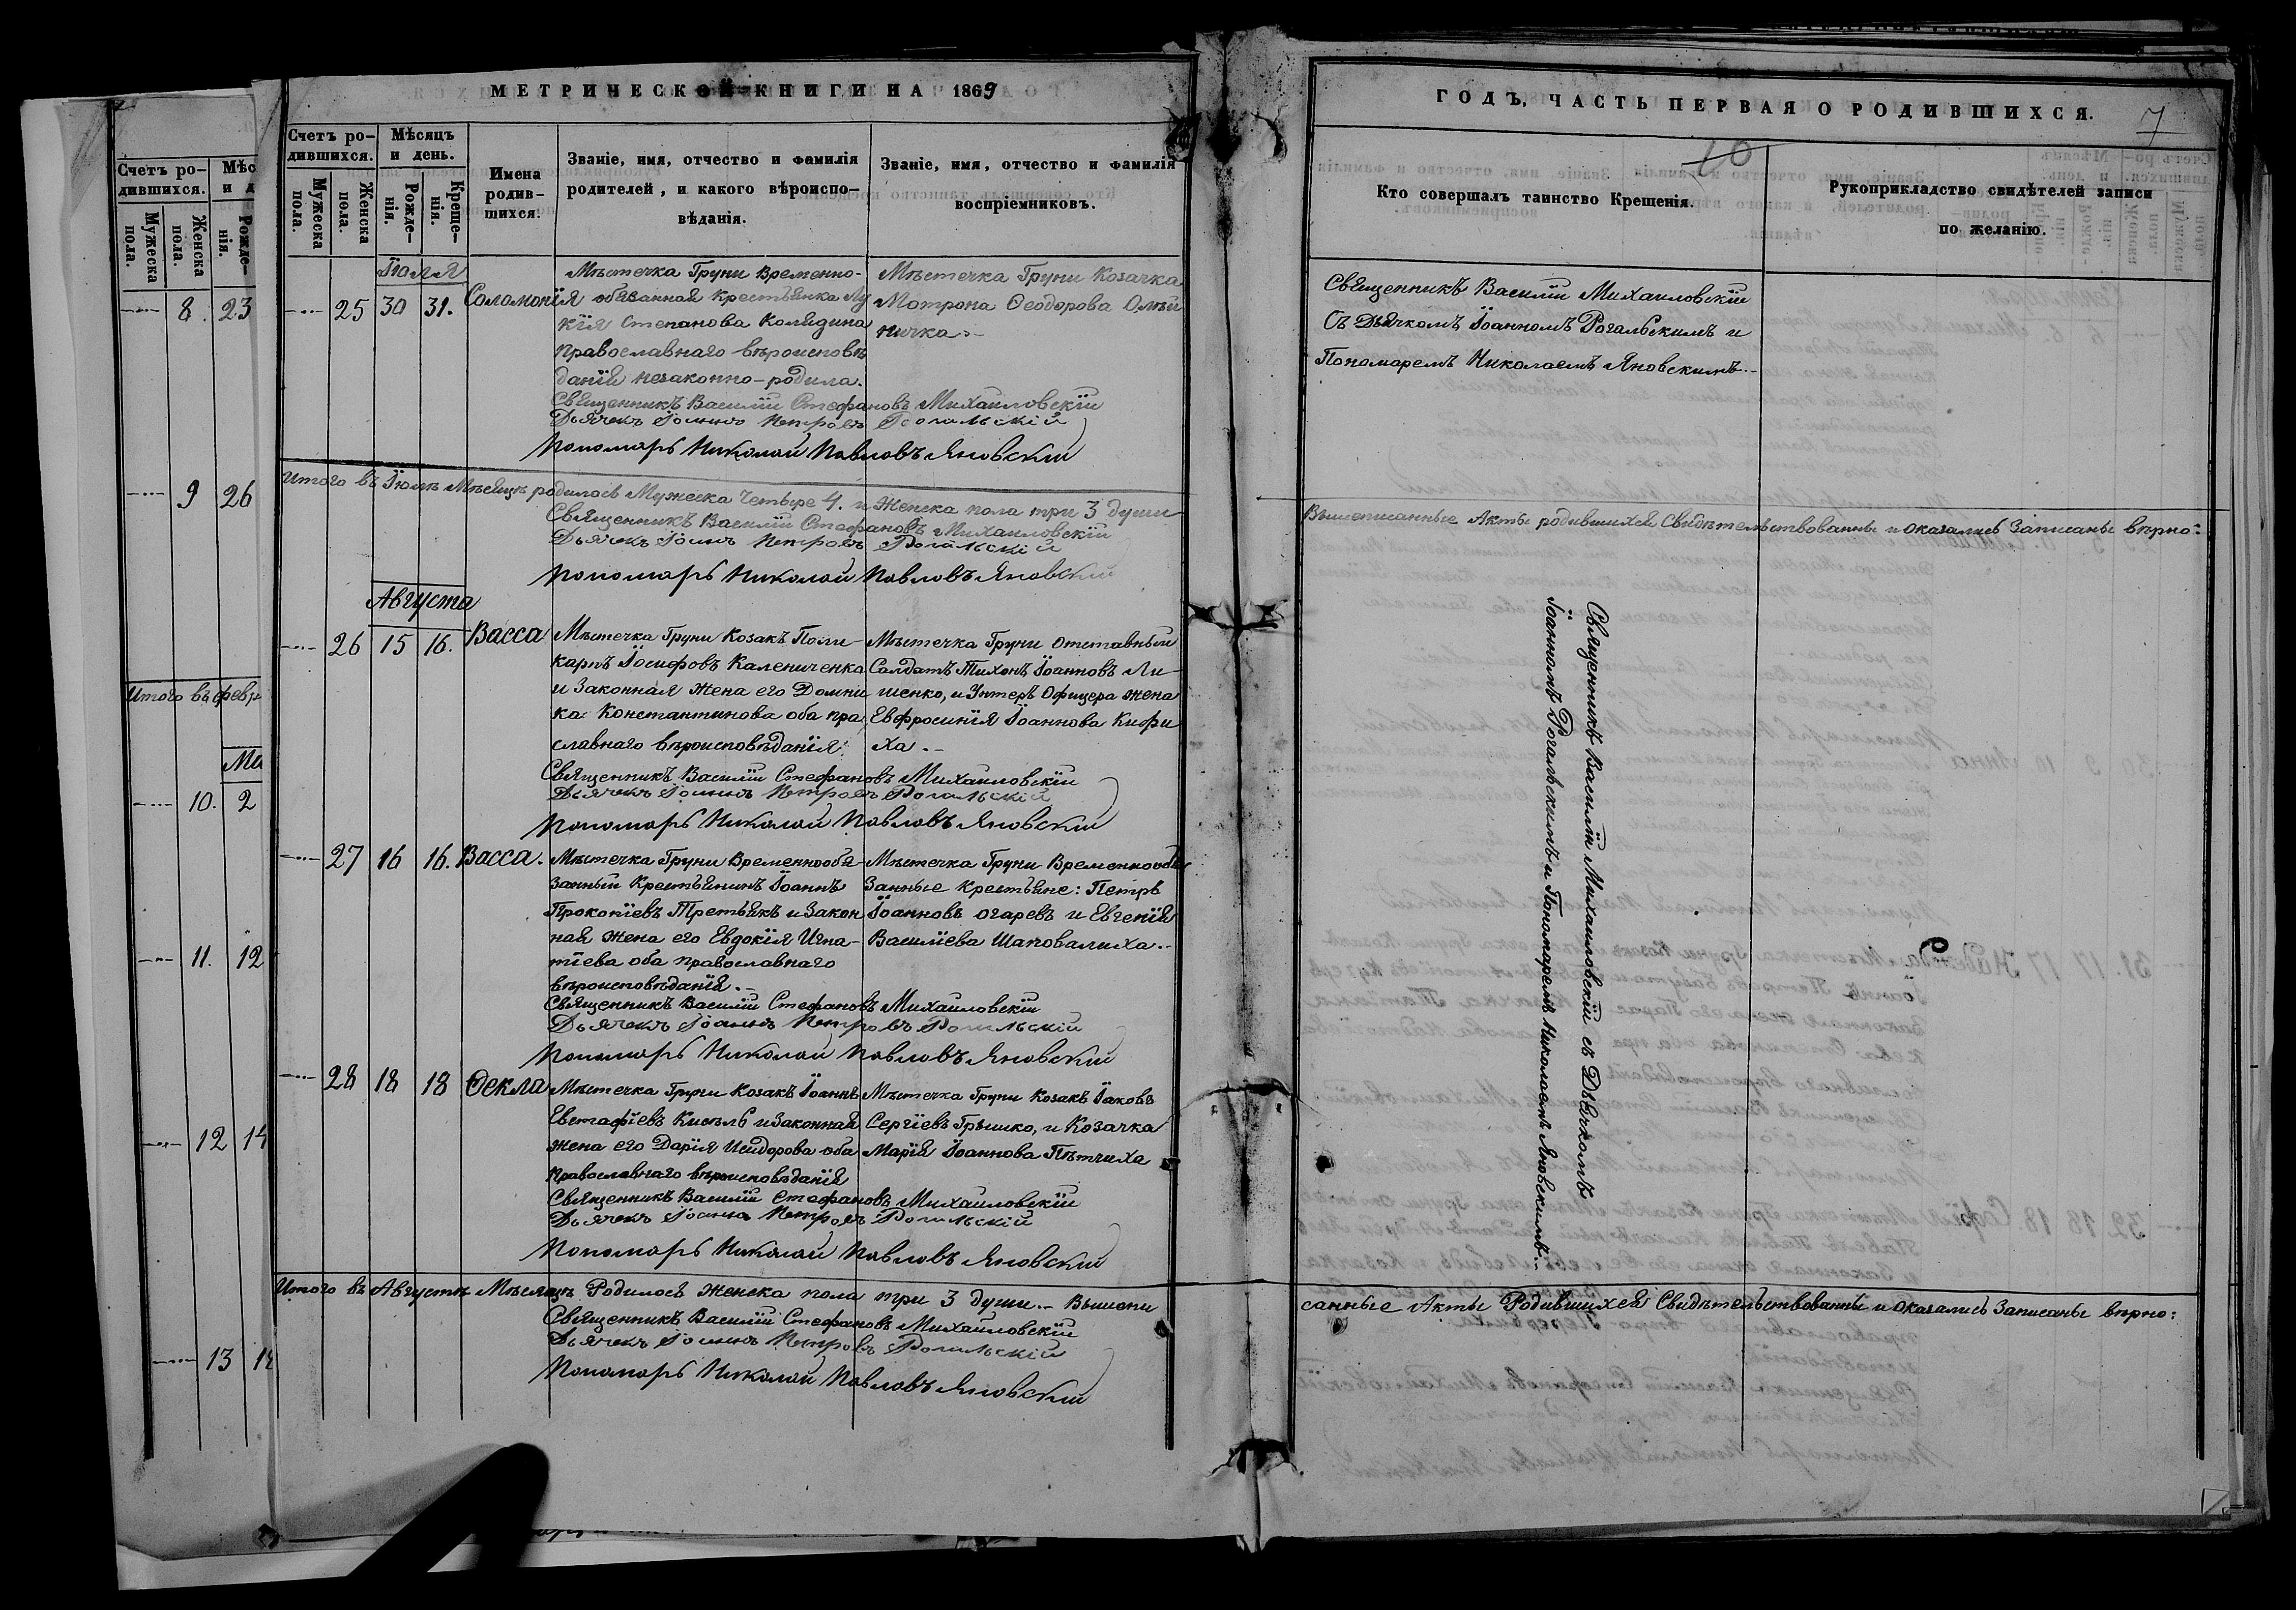 МЕТРИЧЕСКОЙ КНИГИ НА 1869
Счетъ ро-
дившихся.
Мужеска
пола.
Женска
пола.
Мѣсяцъ
и день.
Рожде-
нія.
Креще-
нія.
Имена
родив-
шихся.
Званіе, имя, отчество и фамилія
родителей, и какого вѣроиспо-
вѣданія.
Званіе, имя, отчество и фамилія
воспріемниковъ.
Іюля
25 30 31. Соломонія
Мѣстечка Груни временно-
обязанная крестьянка Лу
кія Степанова Колядина
православнаго вѣроисповѣ
данія незаконно-родила.
Мѣстечка Груни Козачка
Мотрона Ѳеодорова Олѣй
ничка.-
Священникъ Василій Стефановъ Михаиловскій
Дьячекъ Іоаннъ Петровъ Рогальскій
Пономарь Николай Павловъ Яновскій
Итого въ Іюлѣ Мѣсяцѣ родилось Мужеска Четыре 4. и Женска пола три 3 души
Священникъ Василій Стефановъ Михаиловскій
Дьячекъ Іоаннъ Петровъ Рогальскій
Пономарь Николай Павловъ Яновскій
Августа
26 15 16. Васса
Мѣстечка Груни Козакъ Поли-
карпъ Іосифовъ Калениченко
и Законная Жена его Домни
ка Константинова оба пра
славнаго вѣроисповѣданія.
Мѣстечка Груни Отставный
Салдатъ Тихонъ Іоанновъ Ли-
шенко, и Унтеръ Офицера жена
Евфросинія Іоаннова Кифи
ха.-
Священникъ Василій Стефановъ Михаиловскій
Дьячекъ Іоаннъ Петровъ Рогальскій
Пономарь Николай Павловъ Яновскій
27 16 16. Васса.
Мѣстечка Груни Временнообя-
занный Крестьянинъ Іоаннъ
Прокопіевъ Третьякъ и Закон
ная Жена его Евдокія Игна-
тіева оба православнаго
вѣроисповѣданія.-
Мѣстечка Груни Временнообя
занные крестьяне: Петръ
Іоанновъ Огаревъ и Евгенія
Василіева Шаповалиха.-
Священникъ Василій Стефановъ Михаиловскій
Дьячекъ Іоаннъ Петровъ Рогальскій
Пономарь Николай Павловъ Яновскій
28 18 18 Ѳекла
Мѣстечка Груни Козакъ Іоаннъ
Евстафіевъ Кисѣль и Законная
жена его Дарія Исидорова оба
православнаго вѣроисповѣданія
Мѣстечка Груни Козакъ Іаковъ
Сергіевъ Грѣшко, и Козачка
Марія Іоаннова Пѣтчиха
Священникъ Василій Стефановъ Михаиловскій
Дьячекъ Іоаннъ Петровъ Рогальскій
Пономарь Николай Павловъ Яновскій
Итого въ Августѣ Мѣсяцѣ Родилось Женска пола три 3 души.- Вышепи
Священникъ Василій Стефановъ Михаиловскій
Дьячекъ Іоаннъ Петровъ Рогальскій
Пономарь Николай Павловъ Яновскій
Счетъ ро-
дившихся.
Мужеска
пола.
Женска
пола.
Мѣс
и д
Рожде-
нія.
8. 23
9 26
Итого въ февр
Ма
10. 2
11. 12
12 14
13
ГОДЪ, ЧАСТЬ ПЕРВАЯ О РОДИВШИХСЯ.
7
10
Кто совершалъ таинство Крещенія.
Рукоприкладство свидѣтелей записи
по желанію.
Священникъ Василій Михаиловскій
Съ Дьячкомъ Іоанномъ Рогальскимъ и
Пономаремъ Николаемъ Яновскимъ.-
Вышеписанные Акты родившихся Свидѣтельствованны и оказались Записаны вѣрно:
Священникъ Василій Михаиловскій съ Дьячкомъ
Іоанномъ Рогальскимъ и Пономаремъ Николаемъ Яновскимъ.-
санные Акты Родившихся Свидѣтельствованны и оказались Записаны вѣрно: